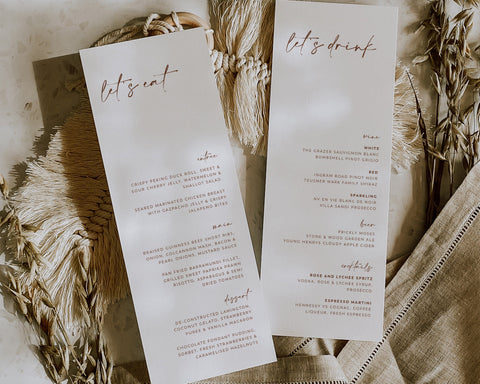 let's eat
entrée
CRISPY PEKING DUCK ROLL, SWEET &
SOUR CHERRY JELLY, WATERMELON &
SHALLOT SALAD
SEARED MARINATED CHICKEN BREAST
WITH GAZPACHO JELLY & CRISPY
JALAPENO BITES
main
BRAISED GUINNESS BEEF SHORT RIBS,
ONION, COLCANNON MASH, BACON &
MUSTARD SAUCE
PAN FRIED BARRAMUNDI FILLET,
GRILLED SWEET PAPRIKA PRAWN
RISOTTO, ASPARAGUS & SEMI
DRIED TOMATOES
dessert
DE-CONSTRUCTED LAMINGTON,
COCONUT GELATO, STRAWBERRY
PUREE & VANILLA MACARON
CHOCOLATE FONDANT PUDDING,
SORBET, FRESH STRAWBERRIES &
CARAMELISED HAZELNUTS
let's drink
wine
WHITE
THE GRAZER SAUVIGNON BLANC
BOMBSHELL PINOT GRIGIO
RED
INGRAM ROAD PINOT NOIR
TEUSNER WARK FAMILY SHIRAZ
SPARKLING
NV EN VIE BLANC DE NOIR
VILLA SANDI PROSECCO
beer
PRICKLY MOSES
STONE & WOOD GARDEN ALE
YOUNG HENRYS CLOUDY APPLE CIDER
cocktails
ROSE AND LYCHEE SPRITZ
VODKA, ROSE & LYCHEE SYRUP,
PROSECCO
ESPRESSO MARTINI
HENNESSY VS COGNAC, COFFEE
LIQUEUR, FRESH ESPRESSO